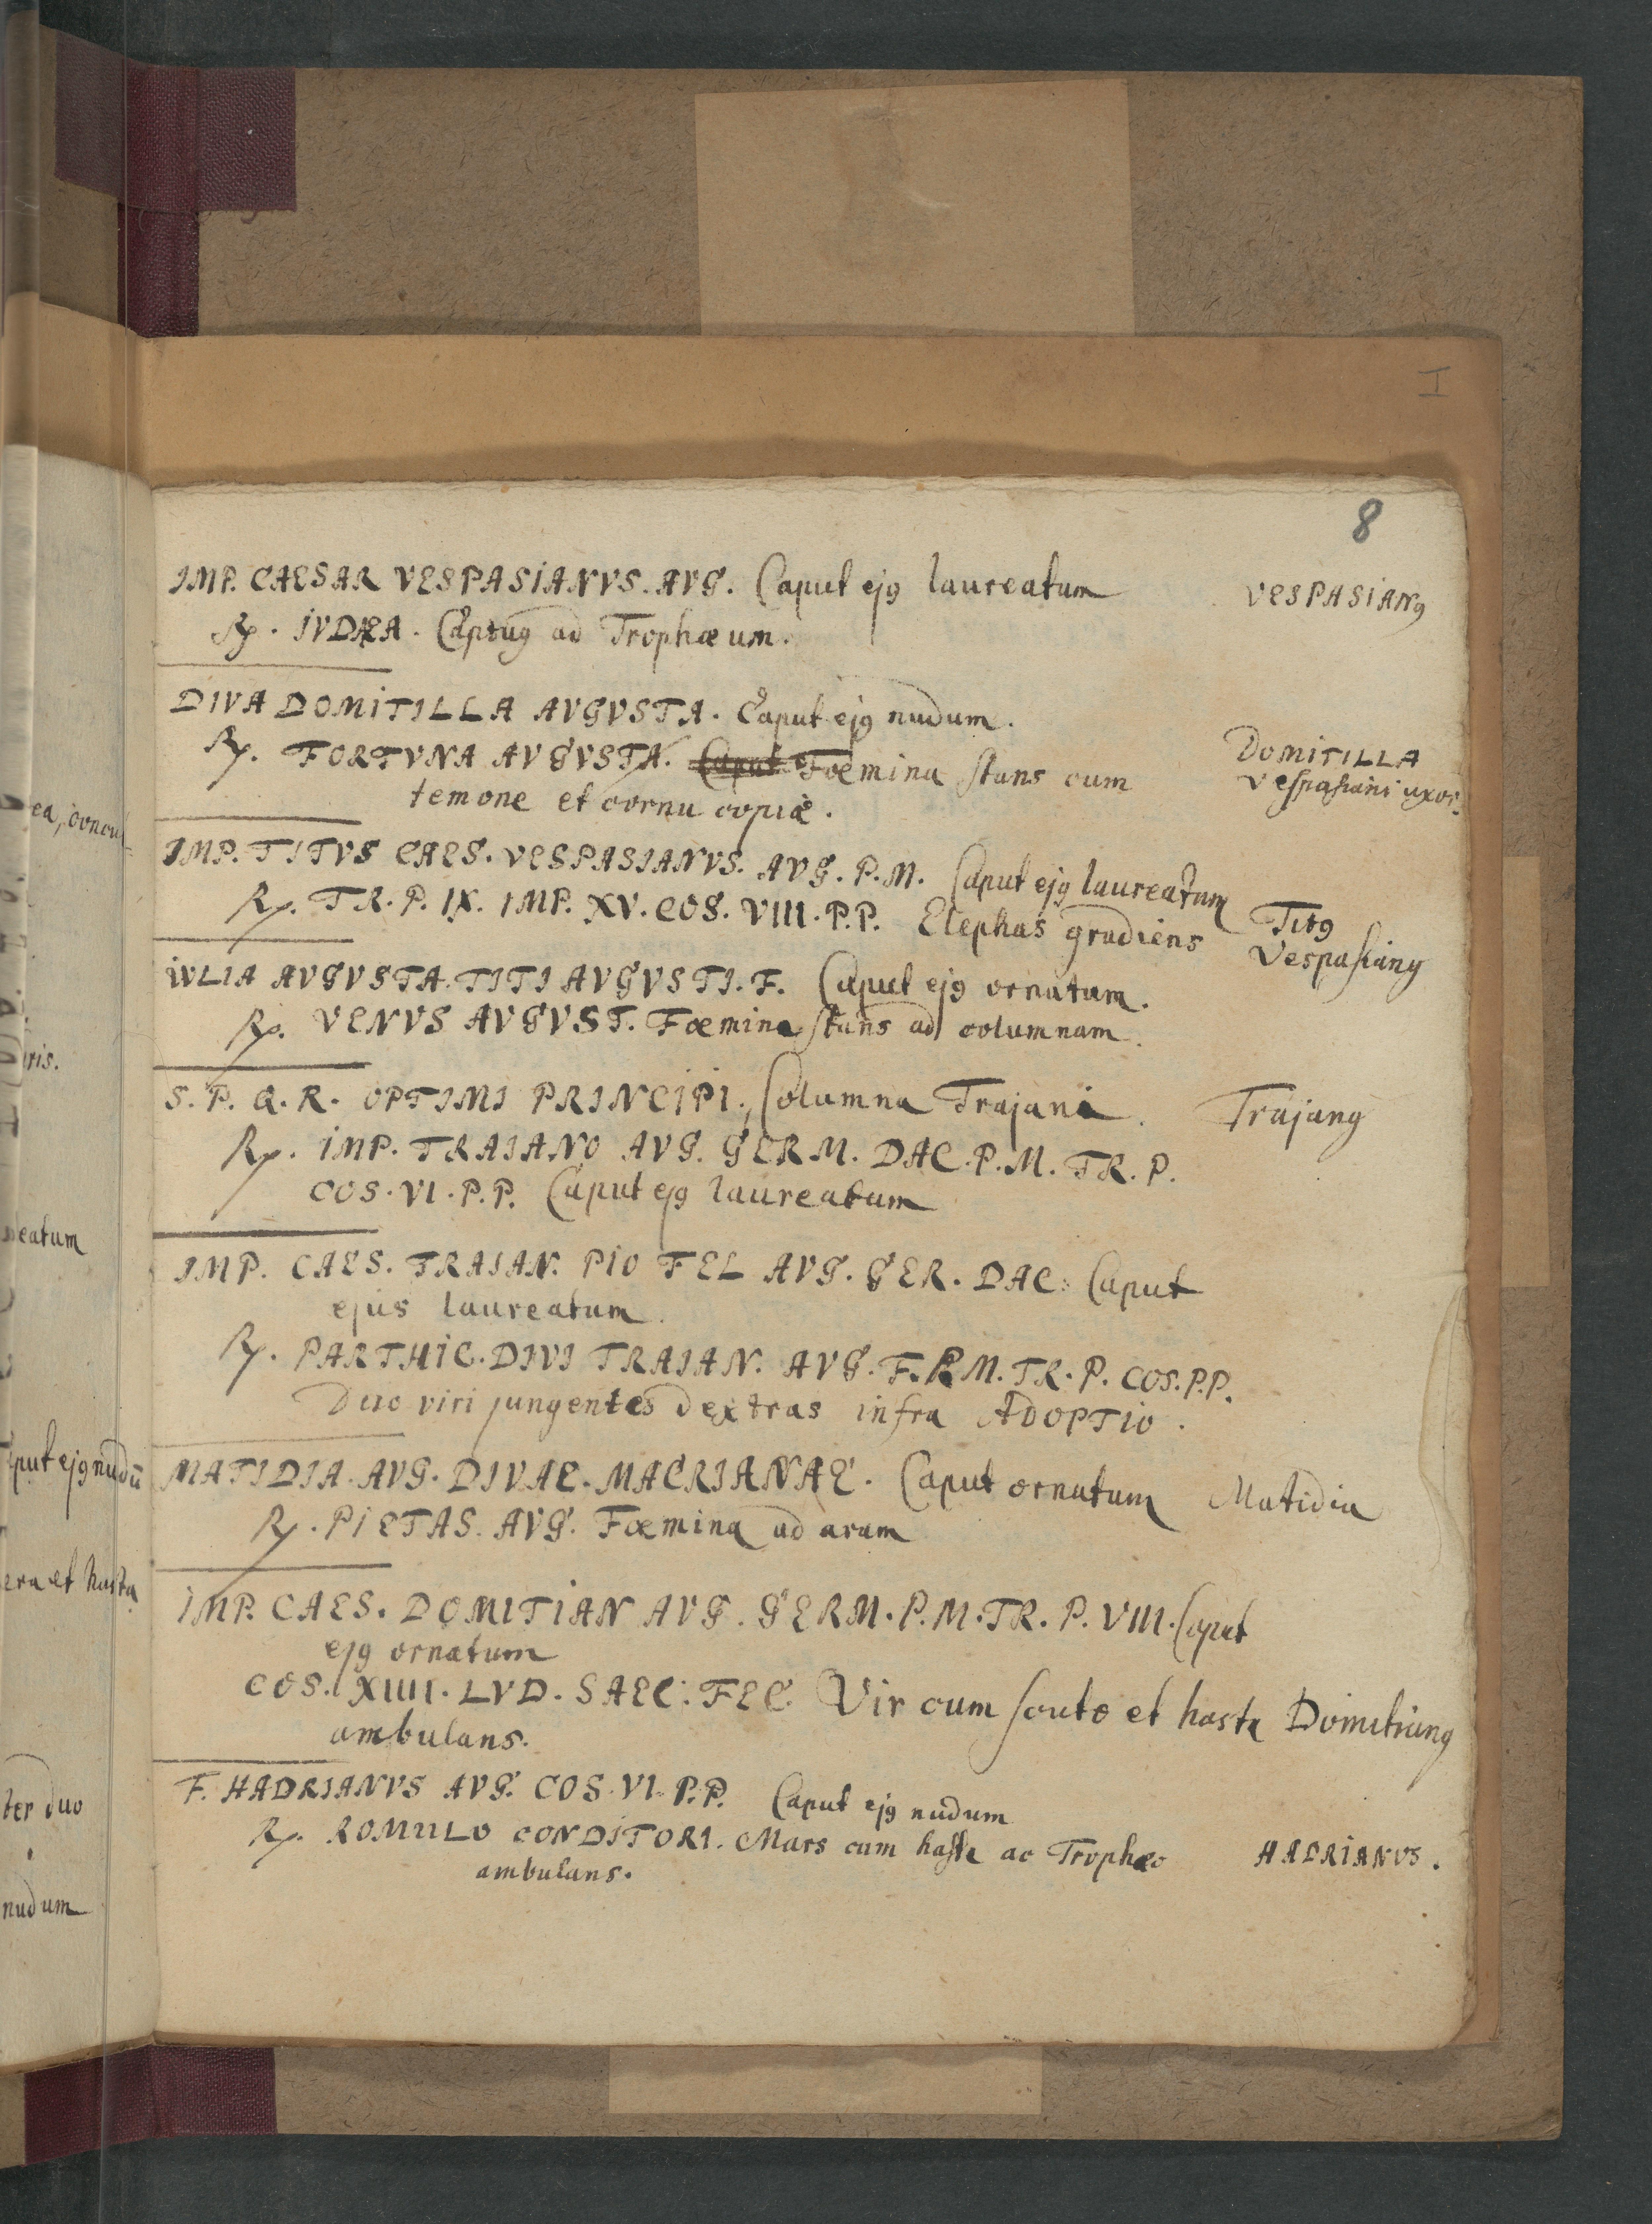 I
8
IMP. CAESAR VESPASIANVS. AVG. Caput ejꝯ laureatum
VESPASIANꝯ
℞. IVDÆA. Captuꝯ ad Trophæum.
DIVA DOMITILLA AVGVSTA. Caput ejꝯ nudum.
℞. FORTVNA AVGVSTA. Caput Fœmina stans cum
temone et cornu copiæ.
DOMITILLA
Vespasiani uxor.
IMP. TITVS CAES. VESPASIANVS. AVG. P.M. Caput ejꝯ laureatum
℞. TR. P. IX. IMP. XV. COS. VIII. P.P. Elephas gradiens
Titꝯ
Vespasianꝯ
IVLIA AVGVSTA. TITI AVGVSTI. F. Caput ejꝯ ornatum.
℞. VENVS AVGVST. Fœmina stans ad columnam.
S. P. Q. R. OPTIMI PRINCIPI. Columna Trajani.
Trajanꝯ
℞. IMP. TRAIANO AVG. GERM. DAC. P. M. TR. P.
COS. VI. P.P. Caput ejꝯ laureatum
IMP. CAES. TRAIAN. PIO FEL AVG. GER. DAC: Caput
ejus laureatum.
℞. PARTHIC. DIVI TRAIAN. AVG. F. P.M. TR. P. COS. P.P.
Duo viri jungentes dextras infra ADOPTIO.
MATIDIA. AVG. DIVAE. MACRIANAE. Caput ornatum
Matidia
℞. PIETAS. AVG. Fœmina ad aram
IMP. CAES. DOMITIAN AVG. GERM. P. M. TR. P. VIII. Caput
ejꝯ ornatum
COS. XIIII. LVD. SAEC. FEC. Vir cum scuto et hasta
Domitianꝯ
ambulans.
F. HADRIANVS AVG. COS. VI. P.P. Caput ejꝯ nudum
℞. ROMULO CONDITORI. Mars cum hasta ac Trophæo
HADRIANVS.
ambulans.
ris.
eatum
put ejꝯ nudū
era et hasta
ter duo
nudum